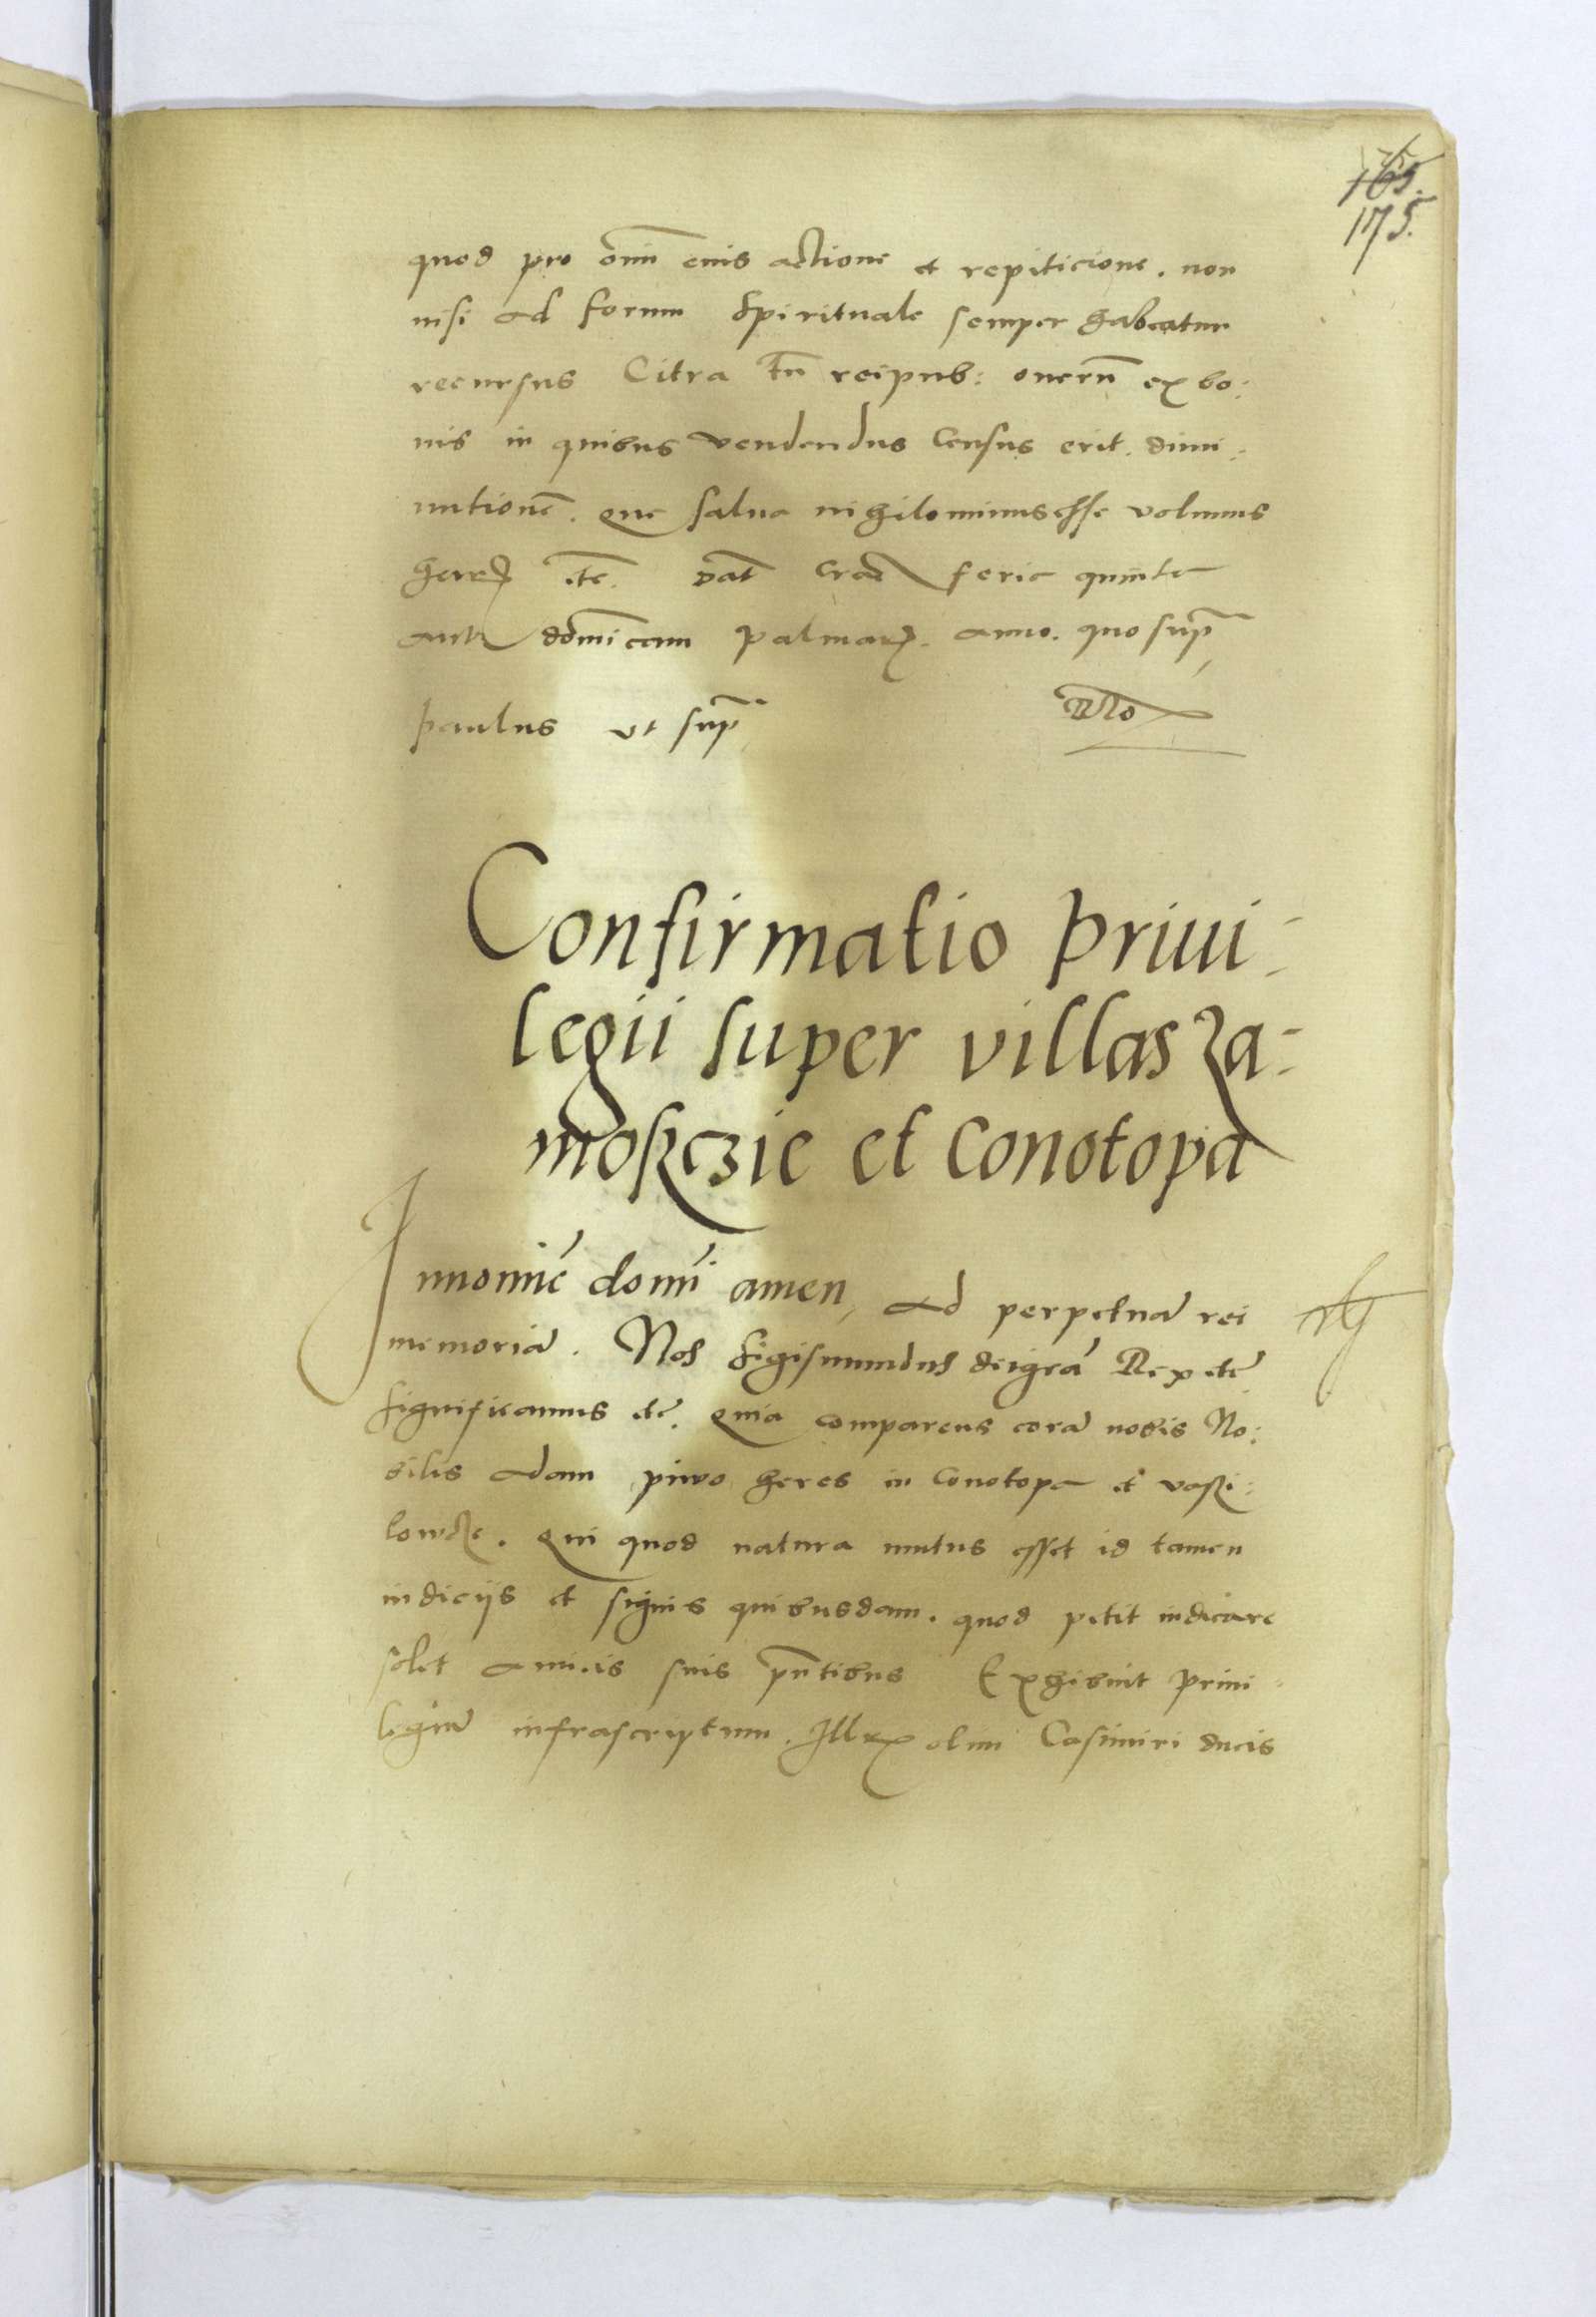 165.
175.
quod pro om̄n eius actione et repiticione. non
nisi ad forum Spirituale semper habeatur
recursus Citra tn̄ reipub: onerū ex bo:
nis in quibus vendendus Census erit. dimi:
nutionē. que salua nihilominus esse volumus
harū etc̄. Dat̄ Crac̄ feria quinta
ante domīcam palmarū. anno. quo sup̄
paulus vt sup̄
Confirmatio priui-
legii super villas Za-
moskczie et Conotopa
In nomīe domī amen, Ad perpetuā rei
memoriā. Nos Sigismundus dei grā Rex etc̄
significamus etc̄. quia comparens corā nobis No:
bilis Adam piwo heres in Conotopa et vassi:
lowka. qui quod natura mutus esset id tamen
indicijs et signis quibusdam. quod petit indicare
solet amicis suis pn̄tibus Exhibuit priui-
legiū infrascriptum. Ill olim Casimiri ducis